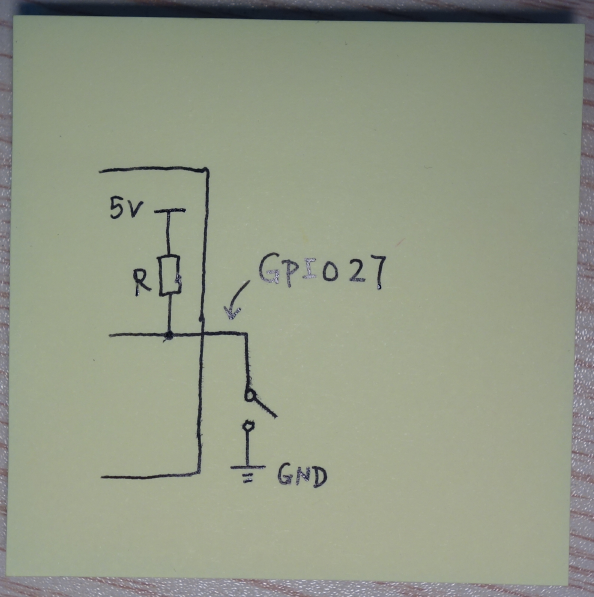 5V
R
GPIO27
GND